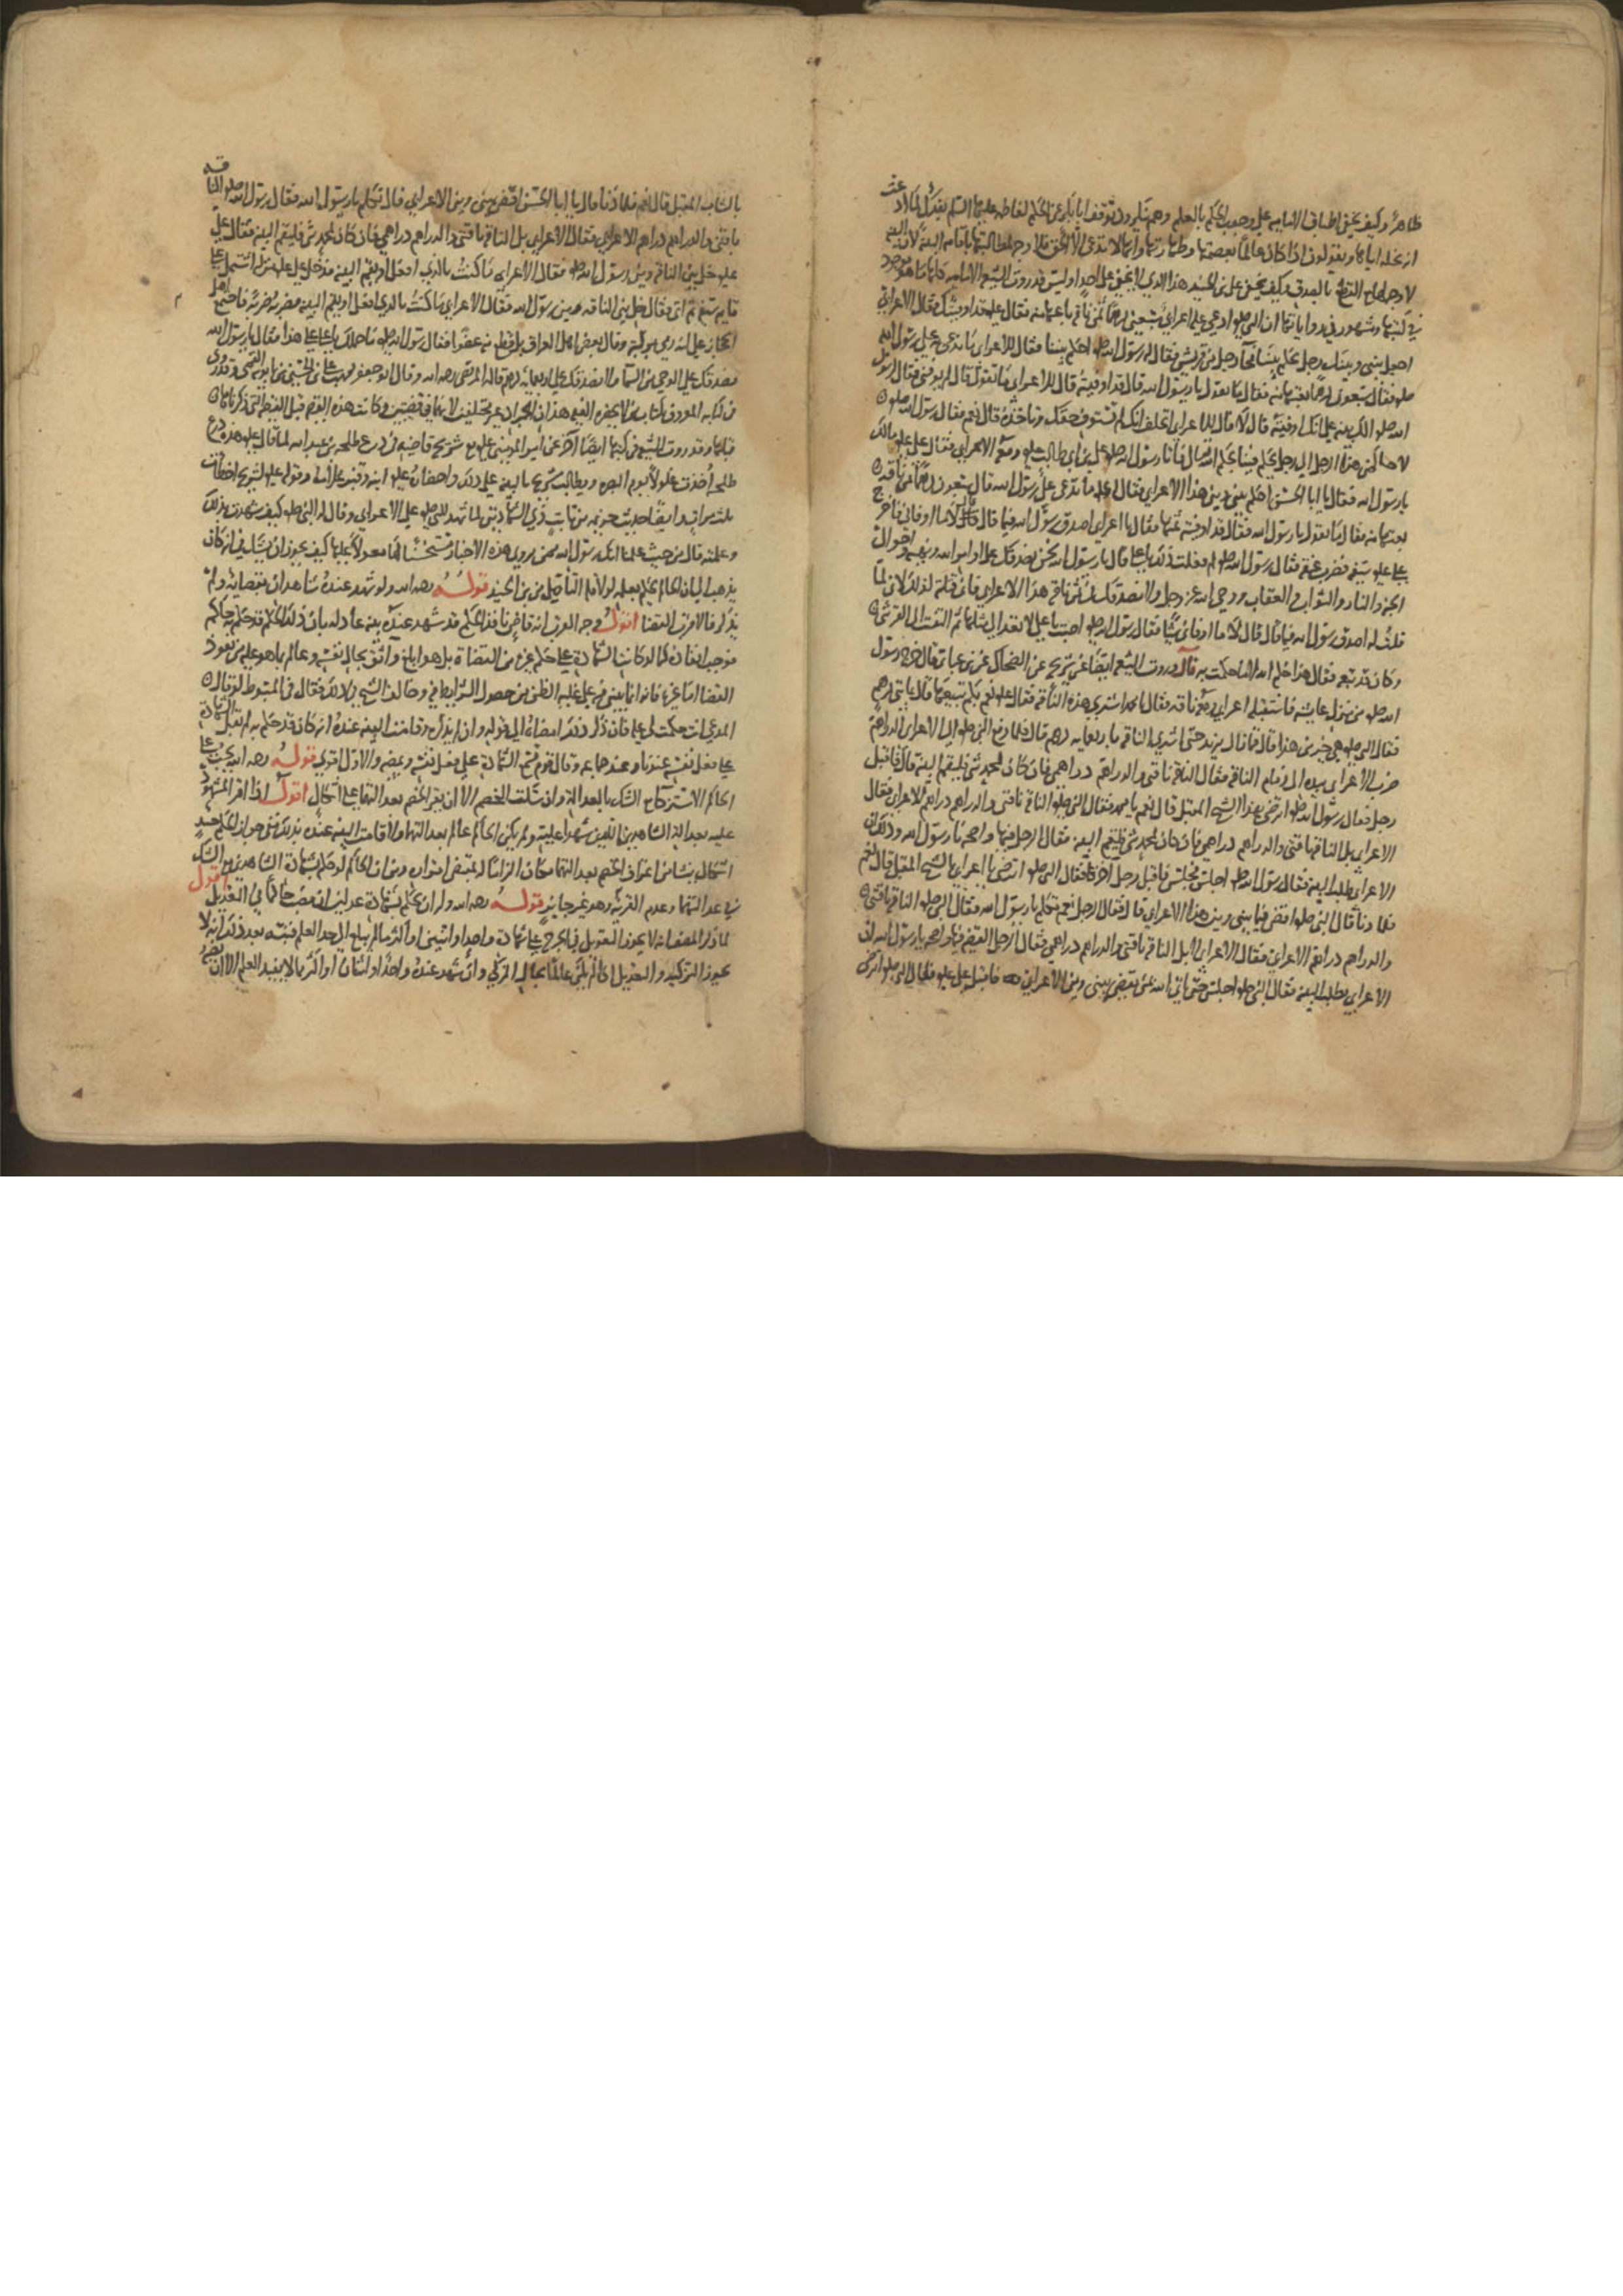 ظاهرا وكيف يخفى اطباق الامامية على وجوب الحكم بالعلم وهم ينكرون توقف ابا بكر عن الحكم لفاطمة عليها السلم بفدك لما ادعت
انه نحله اياها ويقولون اذا كان عالما بعصمتها وطهارتها وانها لا تدعي الا الحق فلا وجه لمطالبتها باقامة البينة لان البينة
لا وجه لها مع القطع بالصدق وكيف يخفى على بن الجنيد هذا الذي لا يخفى على احد اوليس قد روت الشيعة الامامية
في كتبها ومشهور في رواياتها ان النبي صلو ادعى عليه اعرابي سبعين درهما ثمن ناقة باعها منه فقال عليه قد اوفيتك فقال الاعرابي
اجعل بيني وبينك رجل يحكم بيننا فجآ رجل من قريش فقال له رسول الله صلو احكم بيننا فقال للاعرابي ما تدعي على رسول الله
صلو فقال سبعون درهما ثمن ناقة بعتها منه فقال ما تقول يا رسول الله قال قد اوفيته قال للاعرابي ما تقول قال لم يوفني فقال لرسول
الله صلو الك بينة على انك اوفيته قال لا قال للاعرابي اتحلف انك لم تستوف حقك وتاخذه قال نعم فقال رسول الله صلو
لاحاكمن هذا الى رجل يحكم فينا بحكم الله فاتا رسول الله صلو على بن ابي طالب عليه ومعه الاعرابي فقال على عليه مالك
يا رسول الله فقال يا ابا الحسن احكم بيني وبين هذا الاعرابي فقال عليه ما تدعي على رسول الله قال سبعون درهما ثمن ناقة
بعتها منه فقال ما تقول يا رسول الله فقال قد اوفيته ثمنها فقال يا اعرابي اصدق رسول الله فيما قال قال لا ما اوفاني فاخرج
على عليه سيفه فضرب عنقه فقال رسول الله صلو لم فعلت ذلك يا على قال يا رسول الله نحن نصدقك على اوامر الله ونهيه واحوال
الجنة والنار والثواب والعقاب ووحي الله عز وجل ولا نصدقك في ثمن ناقة هذا الاعرابي فاني قتلته لانه كذبك لما
قلت له اصدق رسول الله فيما قال قال لا ما اوفاني شيئا فقال رسول الله صلو اصبت يا على لا تعد الى مثلها ثم التفت الى القرشي
وكان قد تبعه فقال هذا حكم الله لا ما حكمت به قال وروت الشيعة ايضا عن بن جريح عن الضحاك عن بن عباس قال خرج رسول
الله صلو من منزل عايشة فاستقبله اعرابي ومعه ناقة فقال يا محمد اتشتري هذه الناقة فقال عليه نعم بكم تبيعها قال بمايتي درهم
فقال النبي صلو هي خير من هذا قال فما زال يزيد حتى اشترى الناقة باربعمايه درهم قال فلما دفع النبي صلو الى الاعرابي الدراهم
ضرب الاعرابي بيده الى زمام الناقة فقال الناقة ناقتي والدراهم دراهمي فان كان لمحمد شي فليقم البينة قال فاقبل
رجل فقال رسول الله صلو اترضى بهذا الشيخ المقبل قال نعم يا محمد فقال النبي صلو الناقة ناقتي والدراهم دراهم الاعرابي فقال
الاعرابي بل الناقة ناقتي والدراهم دراهمي فان كان لمحمد شي فليقم البينة فقال الرجل فيها واضحة يا رسول الله وذلك ان
الاعرابي طلب البينة فقال رسول الله صلو اجلس فجلس فاقبل رجل اخر فقال النبي صلو اترضى يا اعرابي بالشيخ المقبل قال نعم
فلما دنا قال النبي صلو اقض فيما بيني وبين هذا الاعرابي قال فقال الرجل نعم تكلم يا رسول الله فقال النبي صلو الناقة ناقتي
والدراهم دراهم الاعرابي فقال الاعرابي لا بل الناقة ناقتي والدراهم دراهمي فقال الرجل القضية فيها واضحة يا رسول الله ان
الاعرابي يطلب البينة فقال النبي صلو اجلس حتى ياتي الله بمن يقضي بيني وبين الاعرابي فاقبل على عليه فقال النبي صلو اترضى
بالشاب المقبل قال نعم فلما دنا قال يا ابا الحسن اقض بيني وبين الاعرابي قال تكلم يا رسول الله فقال رسول الله صلو الناقة
ناقتي والدراهم دراهم الاعرابي فقال الاعرابي بل الناقة ناقتي والدراهم دراهمي فان كان لمحمد شي فليقم البينة فقال على
عليه خل بين الناقة وبين رسول الله صلو فقال الاعرابي ما كنت بالذي افعل او يقيم البينة فدخل على عليه منزله فاشتمل على
قايم سيفه ثم اتى فقال خل بين الناقة وبين رسول الله فقال الاعرابي ما كنت بالذي افعل او يقيم البينة فضربه ضربة فاجتمع اهل
الحجاز على انه رمى براسه وقال بعض اهل العراق بل قطع منه عضوا فقال رسول الله صلو ما حملك يا على على هذا فقال يا رسول الله
نصدقك على الوحي من السما ولا نصدقك على اربعماية درهم قاله المرتضى رحمه الله وقال ابو جعفر محمد بن على بن الحسين بن بابويه القمي وقد روى
في كتابه المعروف بكتاب من لا يحضره الفقيه هذان الخبران غير مختلفين لانهما في قضيتين وكانت هذه القضية قبل القضية التي ذكرناها
قبلها وقد روت الشيعة في كتبها ايضا اخر عن امير المومنين عليه مع شريح قاضيه في درع طلحة بن عبد الله لما قال عليه هذه درع
طلحة اخذت غلولا يوم البصرة ومطالبة شريح بالبينة على ذلك واحضاره عليه ابنه وقنبر غلامه وقوله عليه لشريح اخطات
ثلث مرات وايضا حديث خزيمه بن ثابت ذي الشهادتين لما شهد للنبي صلو على الاعرابي وقال له النبي صلو كيف شهدت بذلك
وعلمته قال من حيث علمنا انك رسول الله فمن يروي هذه الاخبار مستحسنا لها معولا عليها كيف يجوز ان يشك في انه كان
يذهب الى ان الحاكم يحكم بعلمه لولا قلة التامل من بن الجنيد قوله رحمه الله ولو شهد عنده شاهدان بقضايه ولم
يذكر فالاقرب القضا اقول وجه القرب انه قاض نافذ الحكم قد شهد عنده بينة عادلة بان ذلك الحكم قد حكم به حاكم
فوجب انفاذه كما لو كانت الشهادة على حكم غيره من القضاة بل هو ابلغ واوثق بحال نفسه وعالم بما هو عليه من نفوذ
القضا اما غيره فانه انما يبني فيه على غلبة الظن من حصول الشرايط فيه وخالف الشيخ في ذلك فقال في المبسوط لو قال
المدعي انت حكمت لي به فان ذكر ذلك امضاه الى قوله وان لم يذكر وقامت البينة عنده انه كان قد حكم به لم يقبل الشهادة
على فعل نفسه عندنا وعند جماعة وقال قوم يسمع الشهادة على فعل نفسه ويمضيه والاول اقوى قوله رحمه الله يجب على
الحاكم الاستزكاء مع الشك بالعدالة وان سكت الخصم الا ان يقر الخصم بعدالتهما على اشكال اقول اذا اقر المشهود
عليه بعدالة الشاهدين اللذين شهدا عليه ولم يكن الحاكم عالم بعدالتهما ولا قامت البينة عنده بذلك ففي جواز الحكم حينئذ
اشكال ينشا من اعتراف الخصم بعدالتهما فكان الزاما له بمقتضى اقراره ومن ان الحاكم لو حكم بشهادة الشاهدين مع الشك
في عدالتهما وعدم التزكية وهو غير جايز قوله رحمه الله وله ان يحكم بشهادة عدلين ان نصب حاكما في التعديل اقول
لما ذكر المصنف انه لا يجوز التعويل في الجرح على شهادة واحد او اثنين او اكثر ما لم يبلغ الى حد العلم فنبه بعد ذلك انه لا
يجوز التزكية والتعديل اذا لم يكن عالما بحال المزكى وان شهد عنده واحد او اثنان او اكثر ما لا يفيد العلم الا ان ينصب